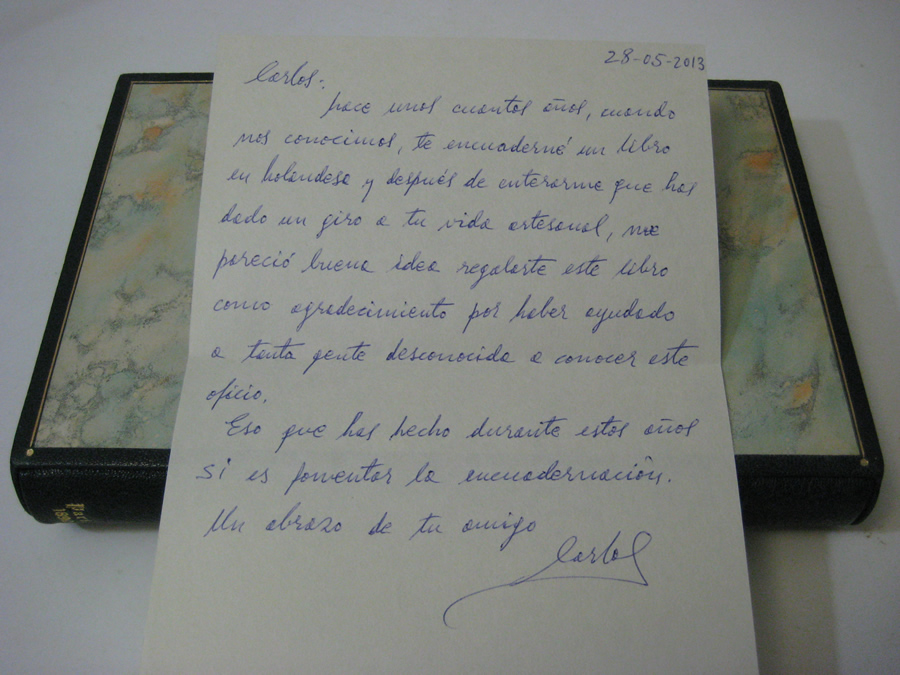 28-05-2013
Carlos:
hace unos cuantos años, cuando
nos conocimos, te encuaderné un libro
en holandesa y después de enterarme que has
dado un giro a tu vida artesanal, me
pareció buena idea regalarte este libro
como agradecimiento por haber ayudado
a tanta gente desconocida a conocer este
oficio.
Eso que has hecho durante estos años
si es fomentar la encuadernación.
Un abrazo de tu amigo
Carlos